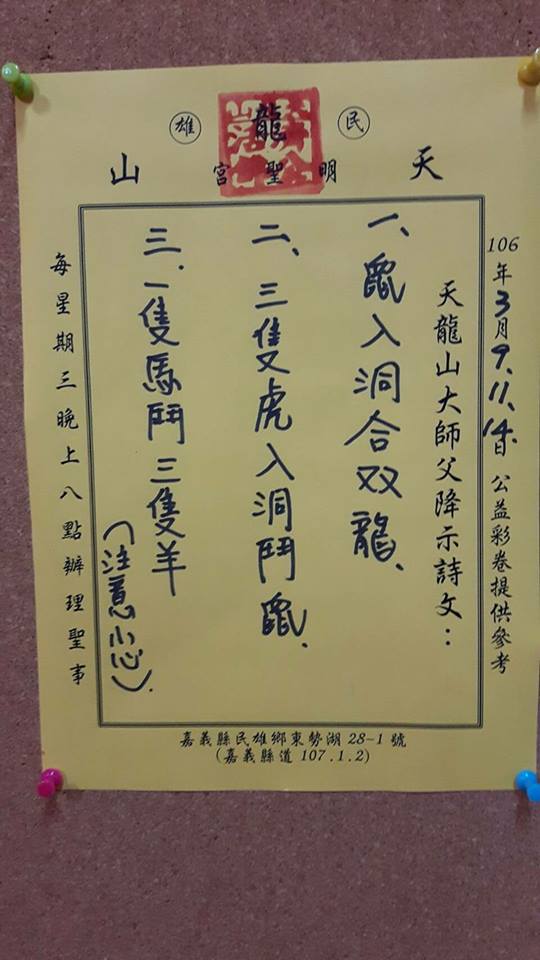 民龍雄
天明聖宮山
106年3月9.11.14.日 公益彩卷提供參考
天龍山大師父降示詩文：
一、鼠入洞合双龍、
二、三隻虎入洞鬥鼠、
三、一隻馬鬥三隻羊
(注意小心).
每星期三晚上八點辦理聖事
嘉義縣民雄鄉東勢湖28-1號
(嘉義縣道107.1.2)